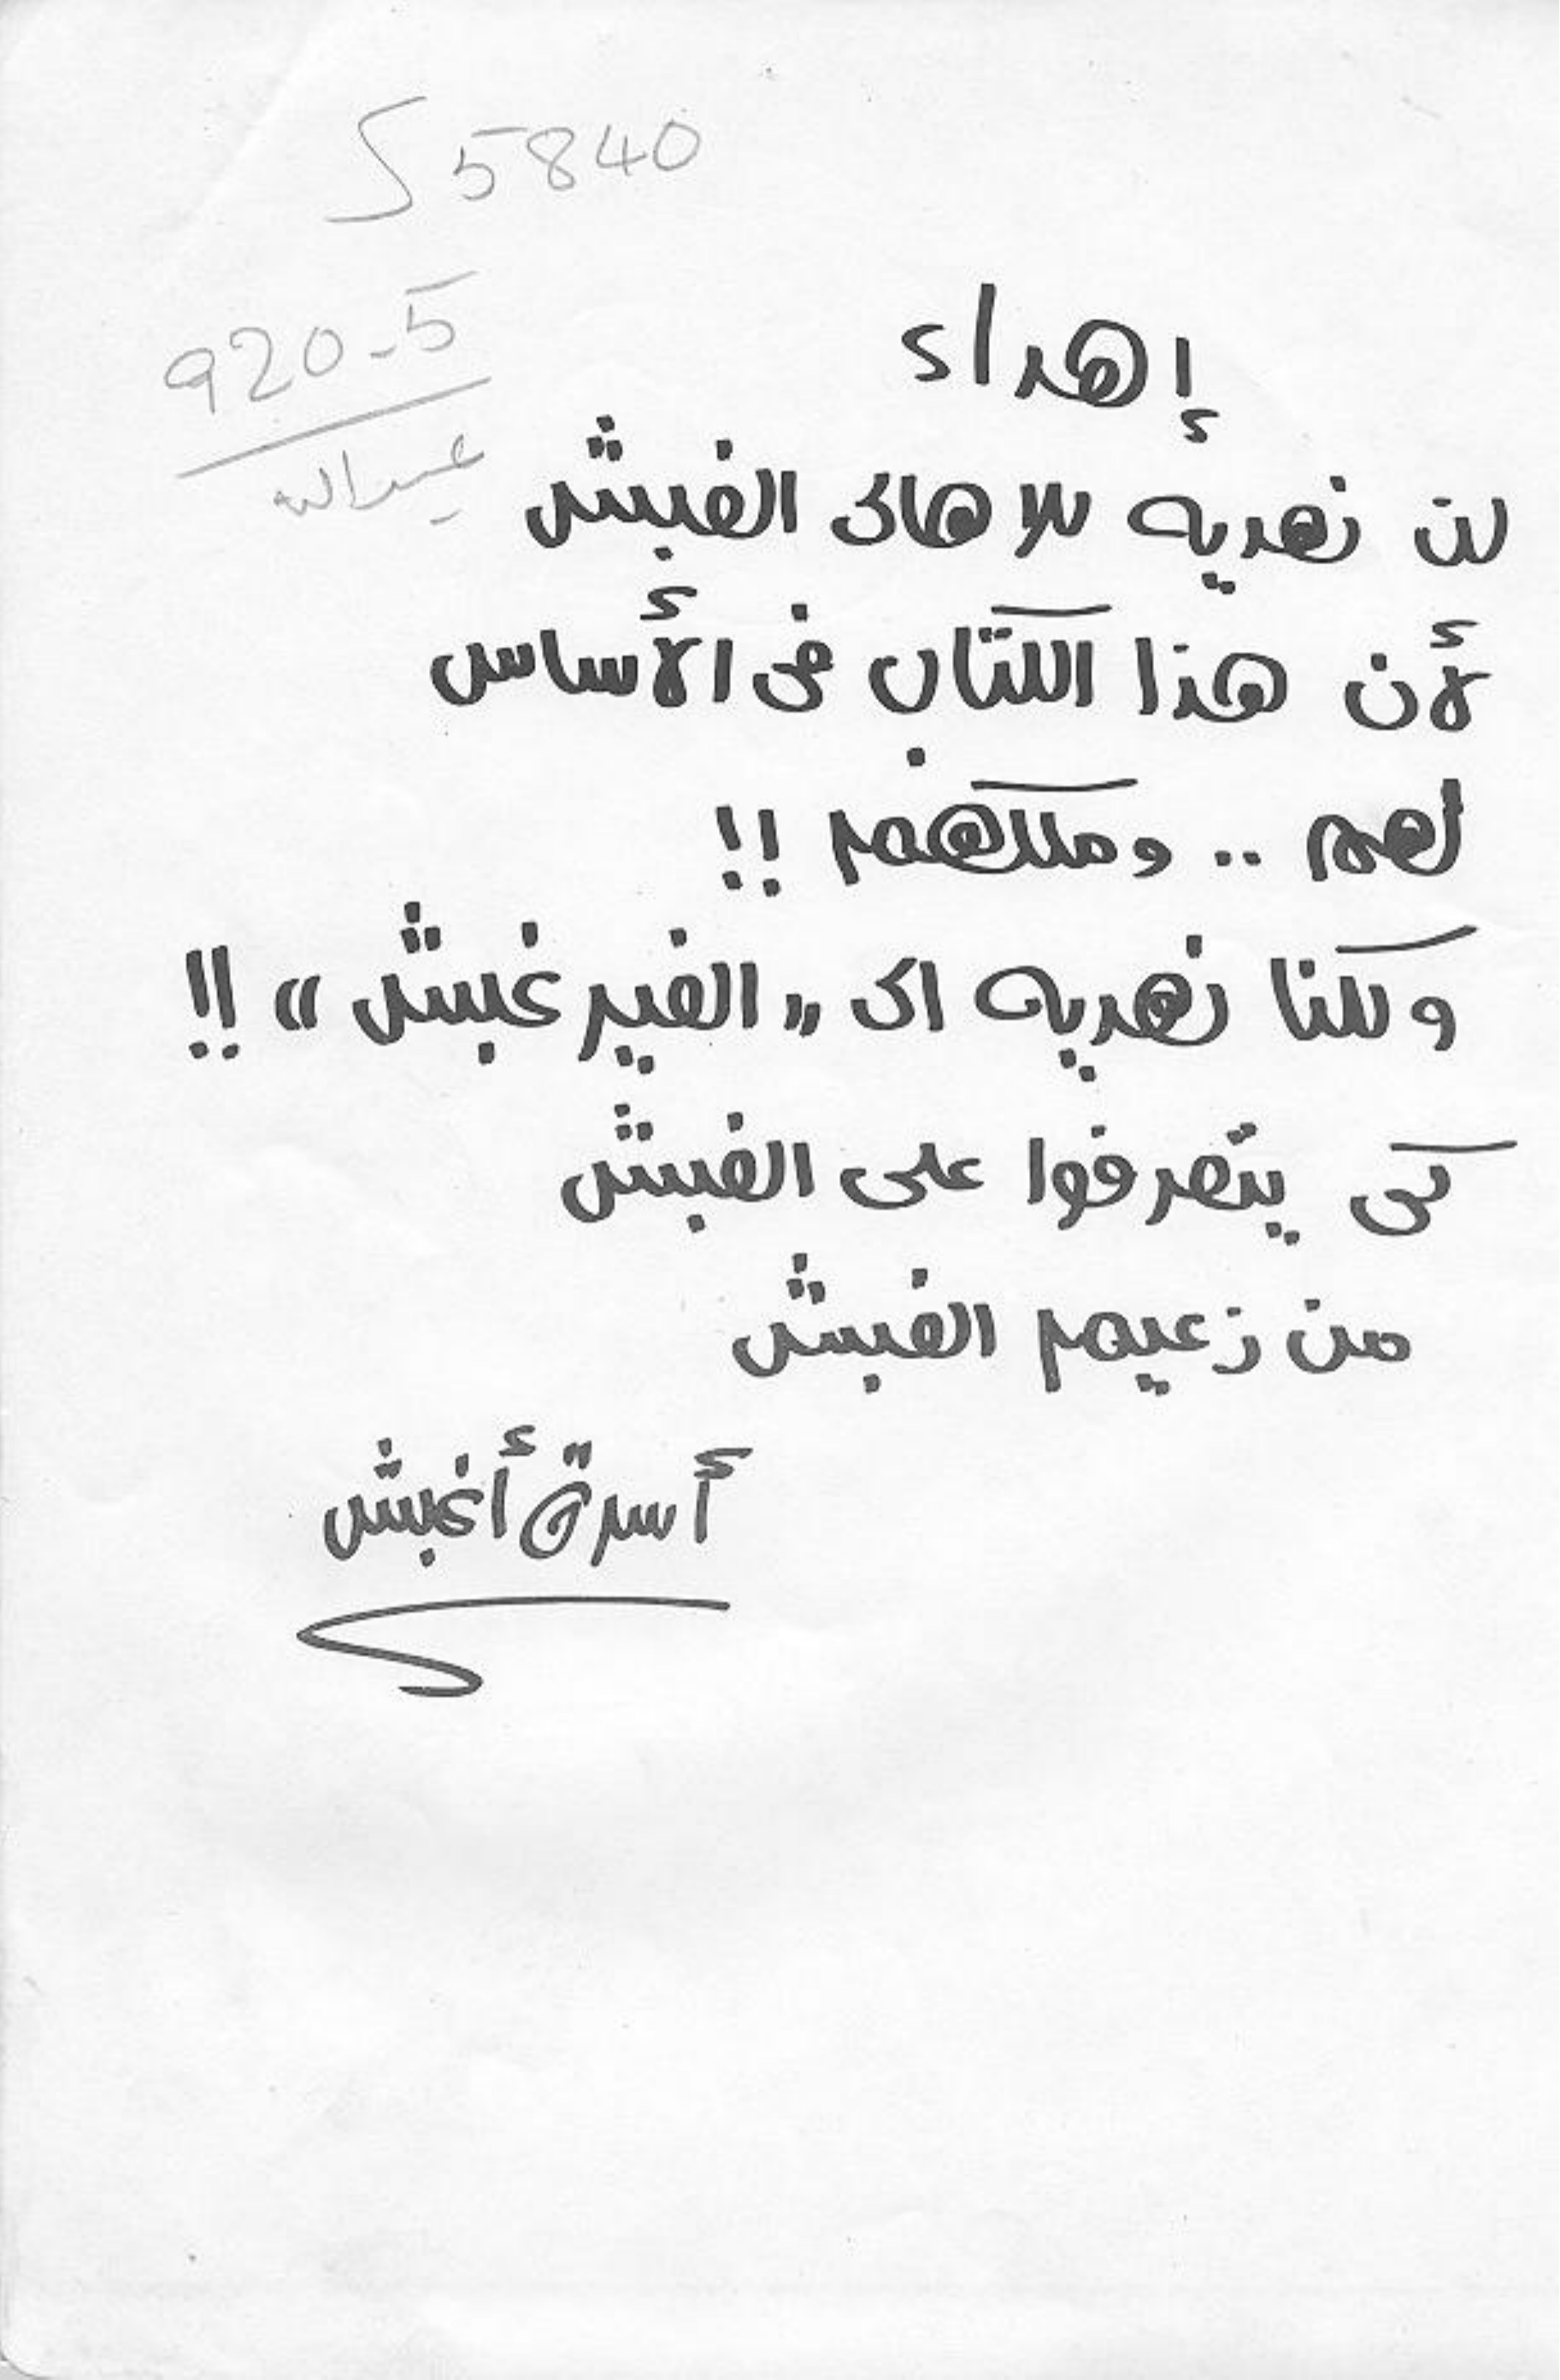 S 5840
920.5
عبدالله
إهداء
لن نهديه للاهالى الغبش
لأن هذا الكتاب فى الأساس
لهم .. وملكهم !!
ولكنا نهديه الى «الغير غبش» !!
كى يتعرفوا على الغبش
من زعيم الغبش
أسرة أغبش